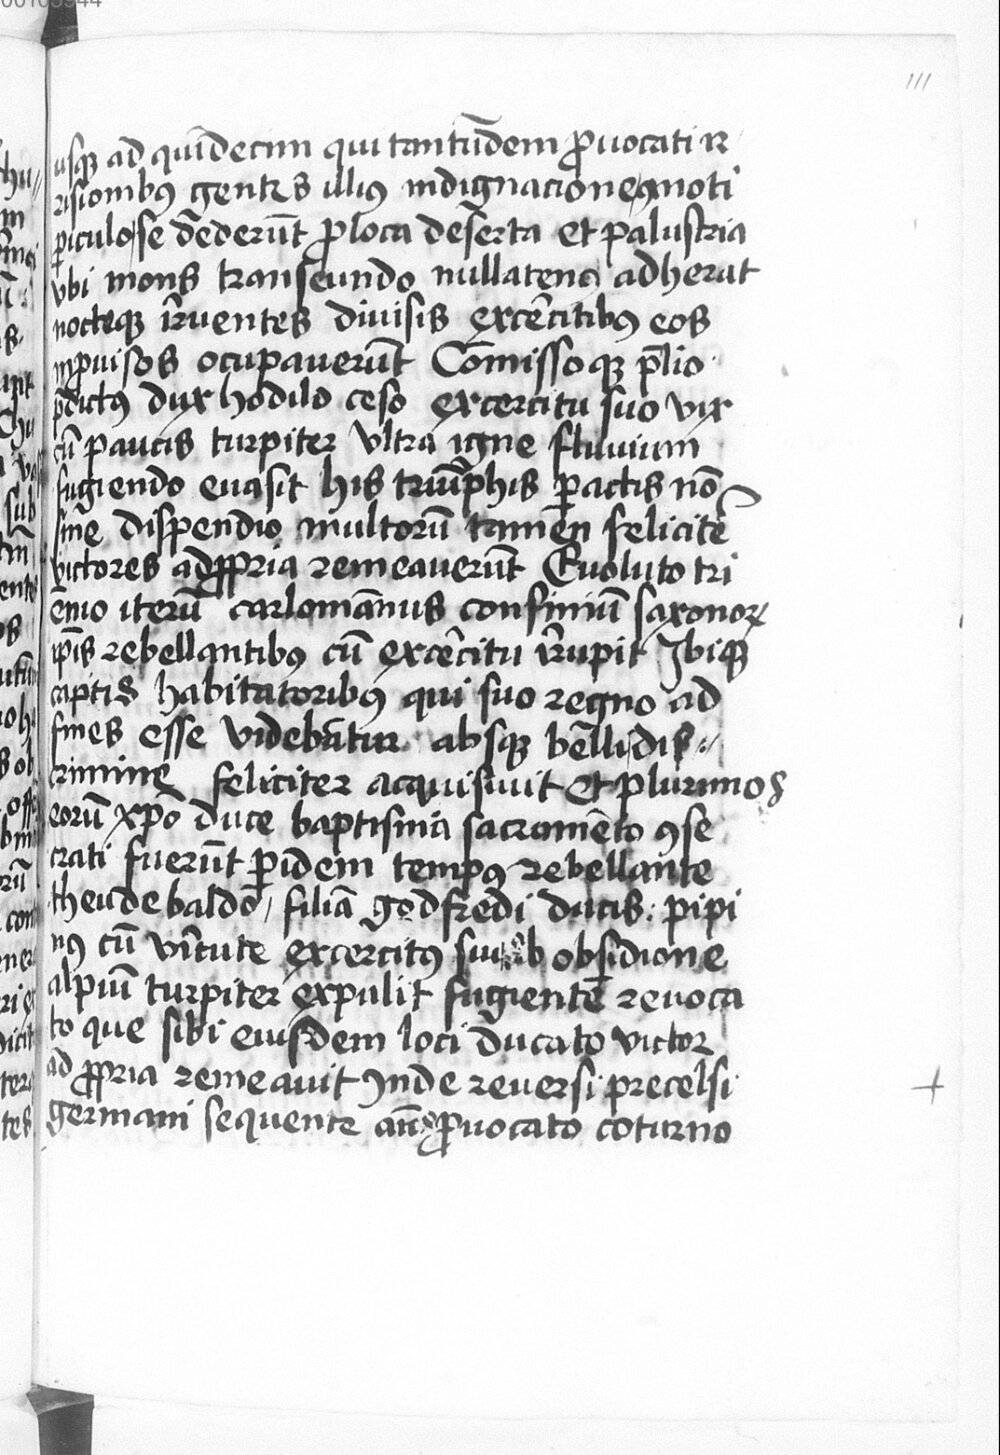 111
usqꝫ ad quīdecim qui tantūdem ꝓuocati ir
risionibꝰ gentes illiꝰ indignacione ꝯmoti
ꝑiculo se dēderūt ꝑ loca deserta et palustria
vbi mons transeundo nullatenꝰ adherat
nocteqꝫ irruentes diuisis excercitibꝰ eos
inꝓuisos ocupauerūt Cōmissoqꝫ p̄lio
p̄dictꝰ dux hodilo ceso excercitu suo vix
cū paucis turpiter vltra igne fluuium
fugiendo euasit his triūphis ꝑactis nō
sine dispendio multorū tamen felicit̄
victores ad ꝓpria remeauerūt Euoluto tri
ennio iterū carlomānus confiniū saxonoꝝ
ip̄is rebellantibꝰ cū excercitu irrupit Ibiqꝫ
captis habitatoribꝰ qui suo regno ad
fines esse videbātur absqꝫ belli dis
crimine feliciter acquisiuit et plurimos
eorū xp̄o duce baptisma sacramēto ꝯse
crati fuerūt ꝑ idem tempꝰ rebellante
theudebaldo, filiā godfredi ducis pipi
nꝰ cū virtute excercitꝰ sui ab obsidione
alpiū turpiter expulit fugientē reuoca
to que sibi eiusdem loci ducato victor
ad ꝓpria remeauit Inde reuersi precelsi
germani sequente anō ꝓuocato coturno